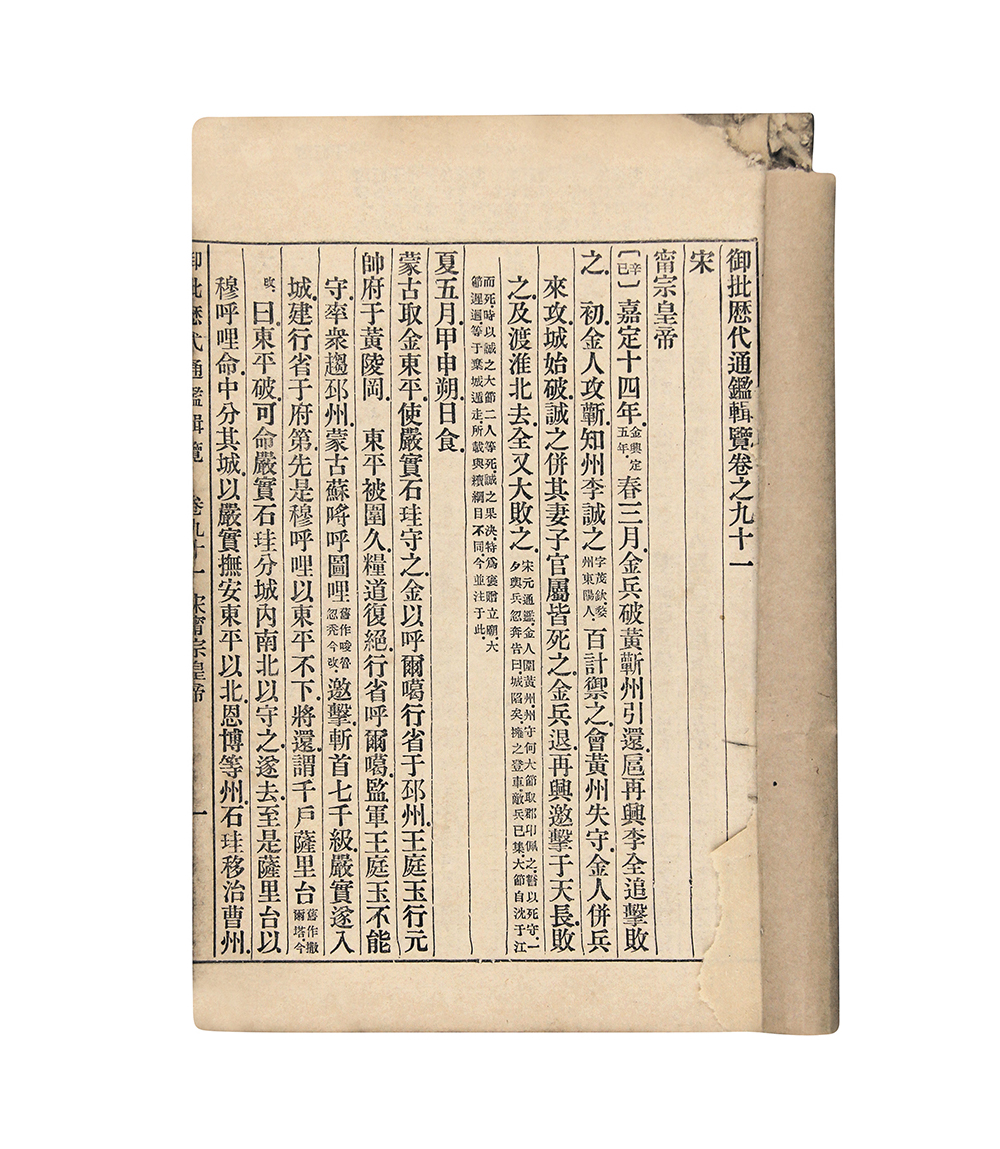 御批歷代通鑑輯覽卷之九十一
宋
甯宗皇帝
〔辛巳〕嘉定十四年金興定五年春三月金兵破黃蘄州引還扈再興李全追擊敗
之 初金人攻蘄知州李誠之字茂欽婺州東陽人百計禦之會黃州失守金人併兵
來攻城始破誠之併其妻子官屬皆死之金兵退再興邀擊于天長敗
之及渡淮北去全又大敗之宋元通鑑金人圍黃州州守何大節取郡印佩之誓以死守一夕輿兵忽奔告曰城陷矣擁之登車敵兵已集大節自沈于江
而死時以誠之大節二人等死誠之果決特爲褒贈立廟大節遲迴等于棄城遁走所載與續綱目不同今並注于此
夏五月甲申朔日食
蒙古取金東平使嚴實石珪守之金以呼爾噶行省于邳州王庭玉行元
帥府于黃陵岡 東平被圍久糧道復絕行省呼爾噶監軍王庭玉不能
守率衆趨邳州蒙古蘇嘚呼圖哩舊作唆魯忽禿今改邀擊斬首七千級嚴實遂入
城建行省于府第先是穆呼哩以東平不下將還謂千戶薩里台舊作撒爾塔今
改曰東平破可命嚴實石珪分城內南北以守之遂去至是薩里台以
穆呼哩命中分其城以嚴實撫安東平以北恩博等州石珪移治曹州
御批歷代通鑑輯覽 卷九十一 宋甯宗皇帝 一